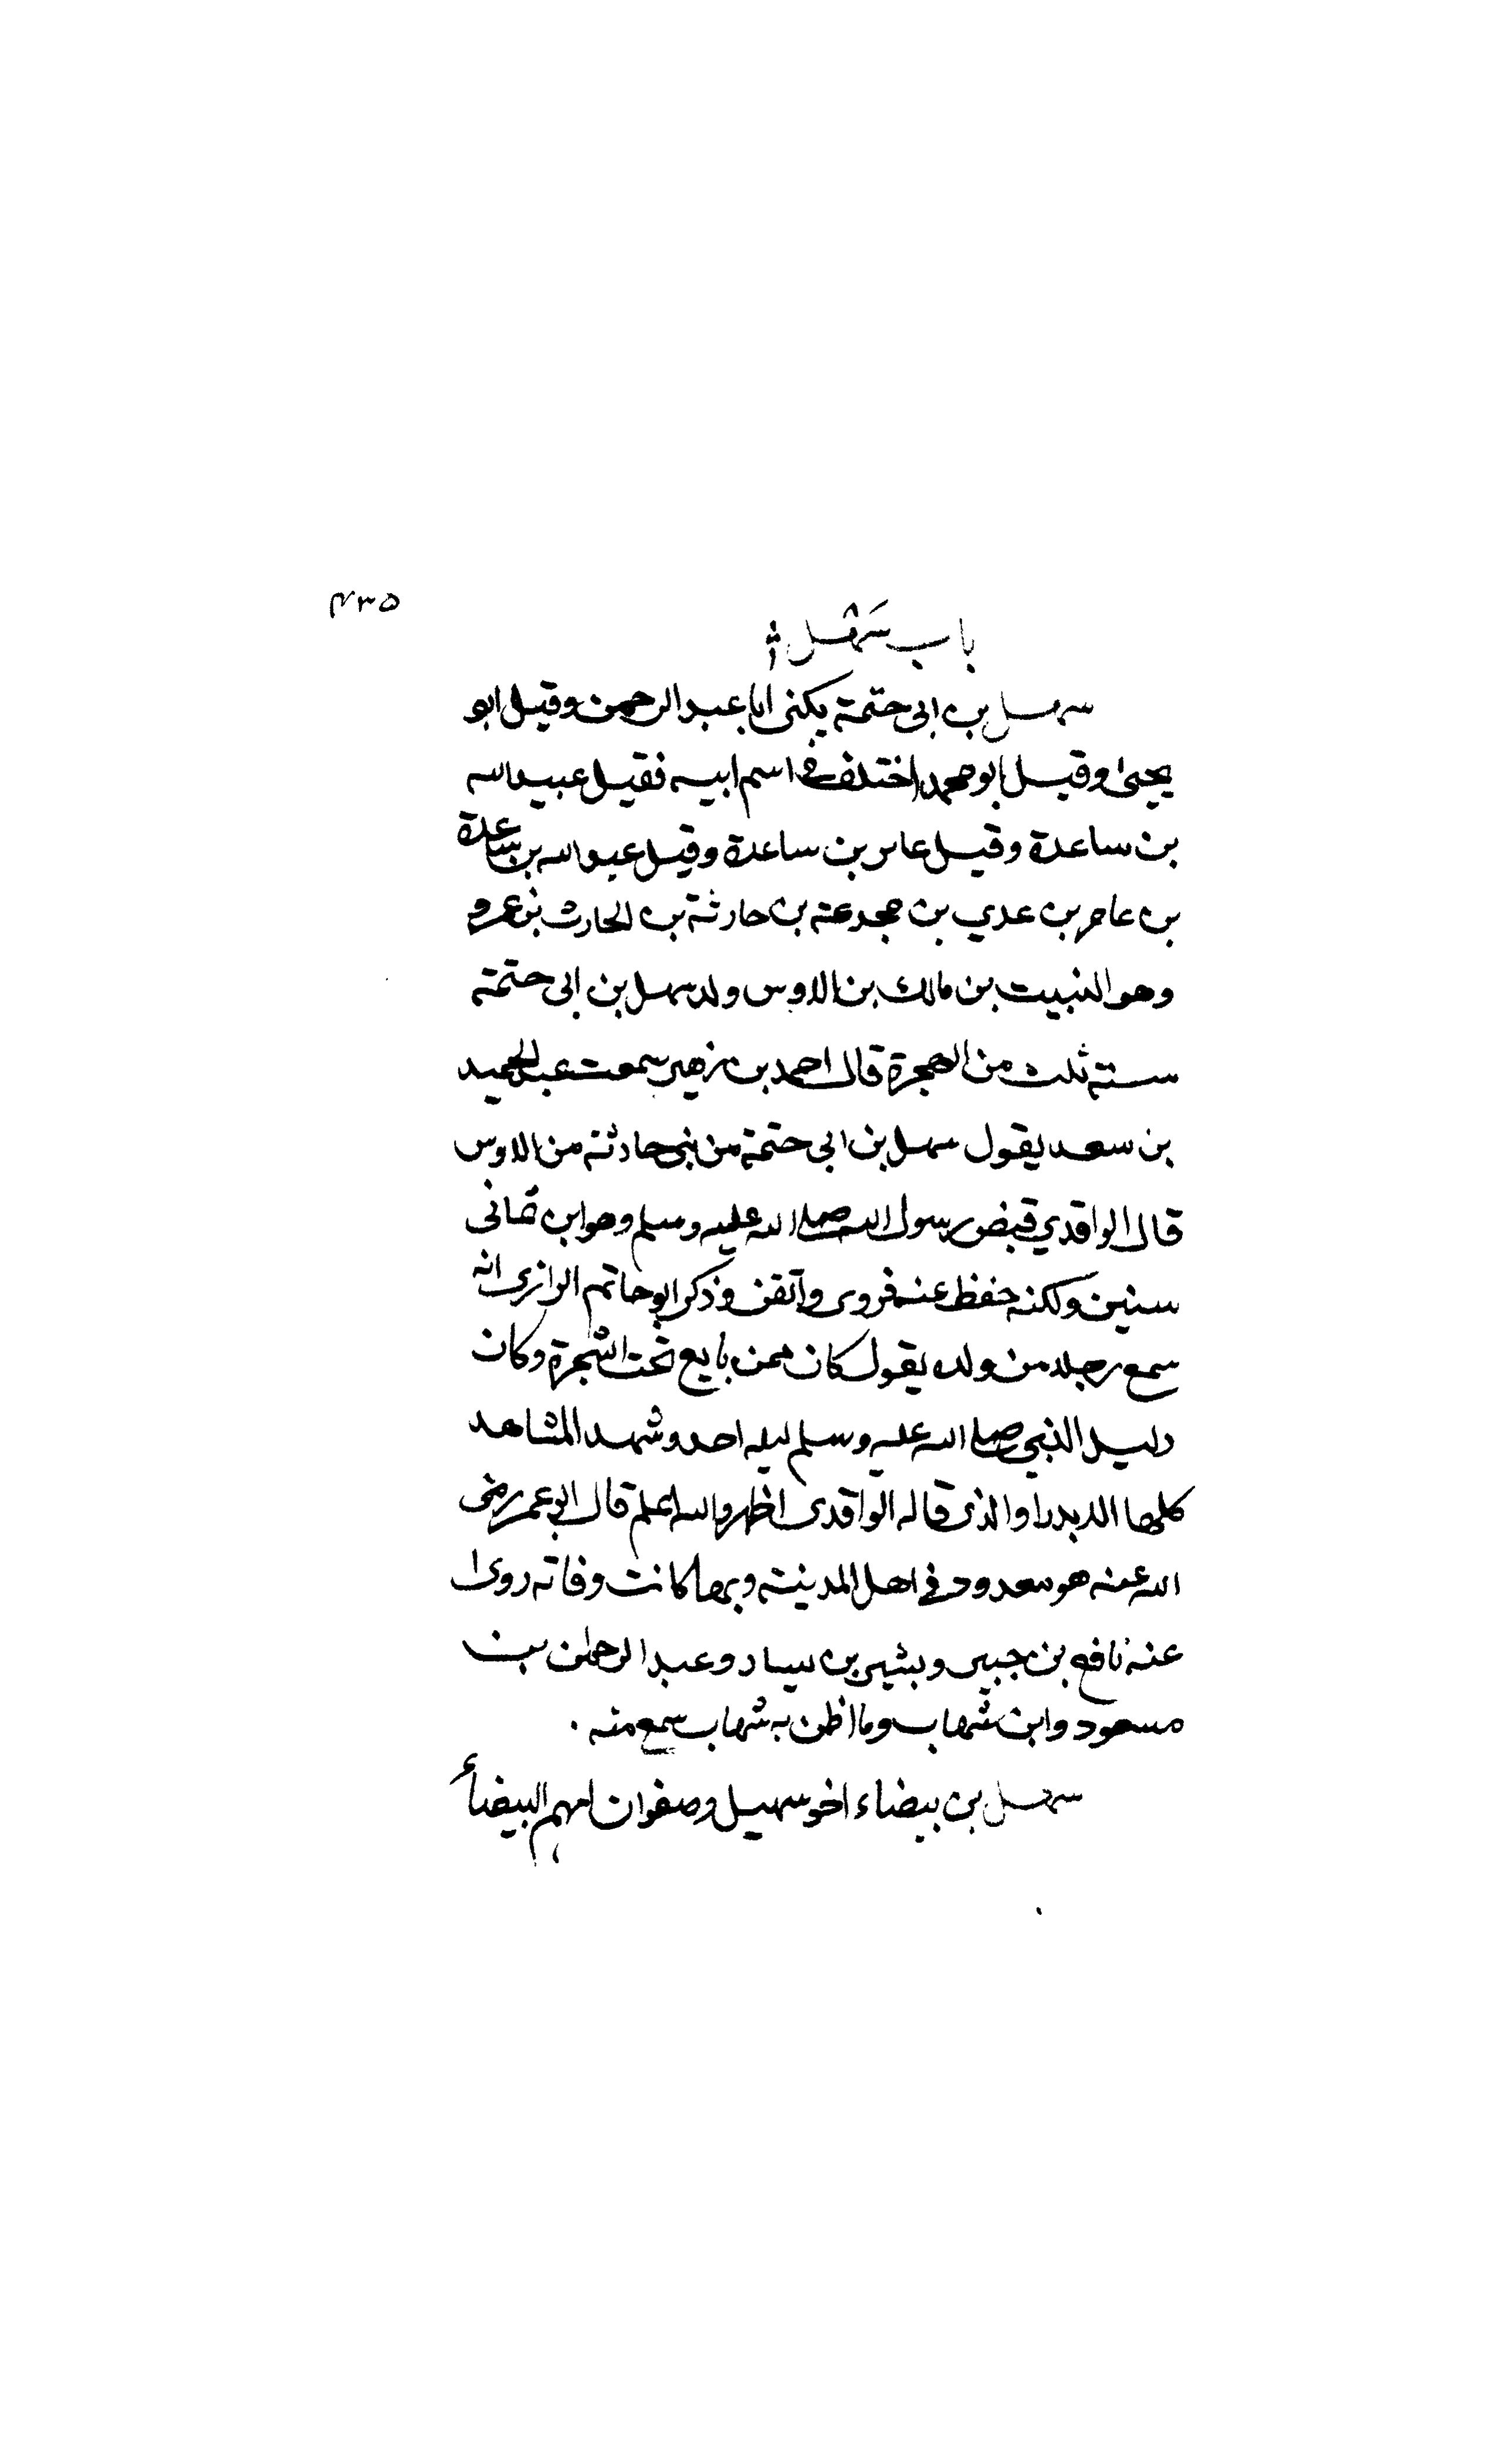 ۴۳۵
باب سَهْل
سهل بن ابى حتمة يكنى ابا عبد الرحمن وقيل ابو
يحيىٰ وقيل ابو محمد اختلف فى اسم ابيه فقيل عبيد الله
بن ساعدة وقيل عامر بن ساعدة وقيل عبد الله بن ساعدة
بن عامر بن عدي بن مجدعة بن حارثة بن الحارث بن عمرو
وهو النبيت بن مالك بن الاوس ولد سهل بن ابى حتمة
سنة ثلث من الهجرة قال احمد بن زهير سمعت عبد الحميد
بن سعد يقول سهل بن ابى حتمة من بنى حادثة من الاوس
قال الواقدي قبض رسول الله صلى الله عليه وسلم وهو ابن ثمانى
سنين ولكنه حفظ عنه فروى واتقن وذكر ابو حاتم الرازى انه
سمع رجلا من ولده يقول كان ممن بايع تحت الشجرة وكان
دليل النبي صلى الله عليه وسلم ليله احد وشهد المشاهد
كلها الا بدرا والذى قاله الواقدى اظهر والله اعلم قال ابو عمر رضى
الله عنه هو معدود فى اهل المدينة وبها كانت وفاته روى
عنه نافع بن جبير وبشير بن يساد وعبد الرحمٰن بن
مسعود وابن شهاب وما اظن به شهاب سمع منه .
سهل بن بيضاء اخو سهيل وصفوان امهم البيضاء